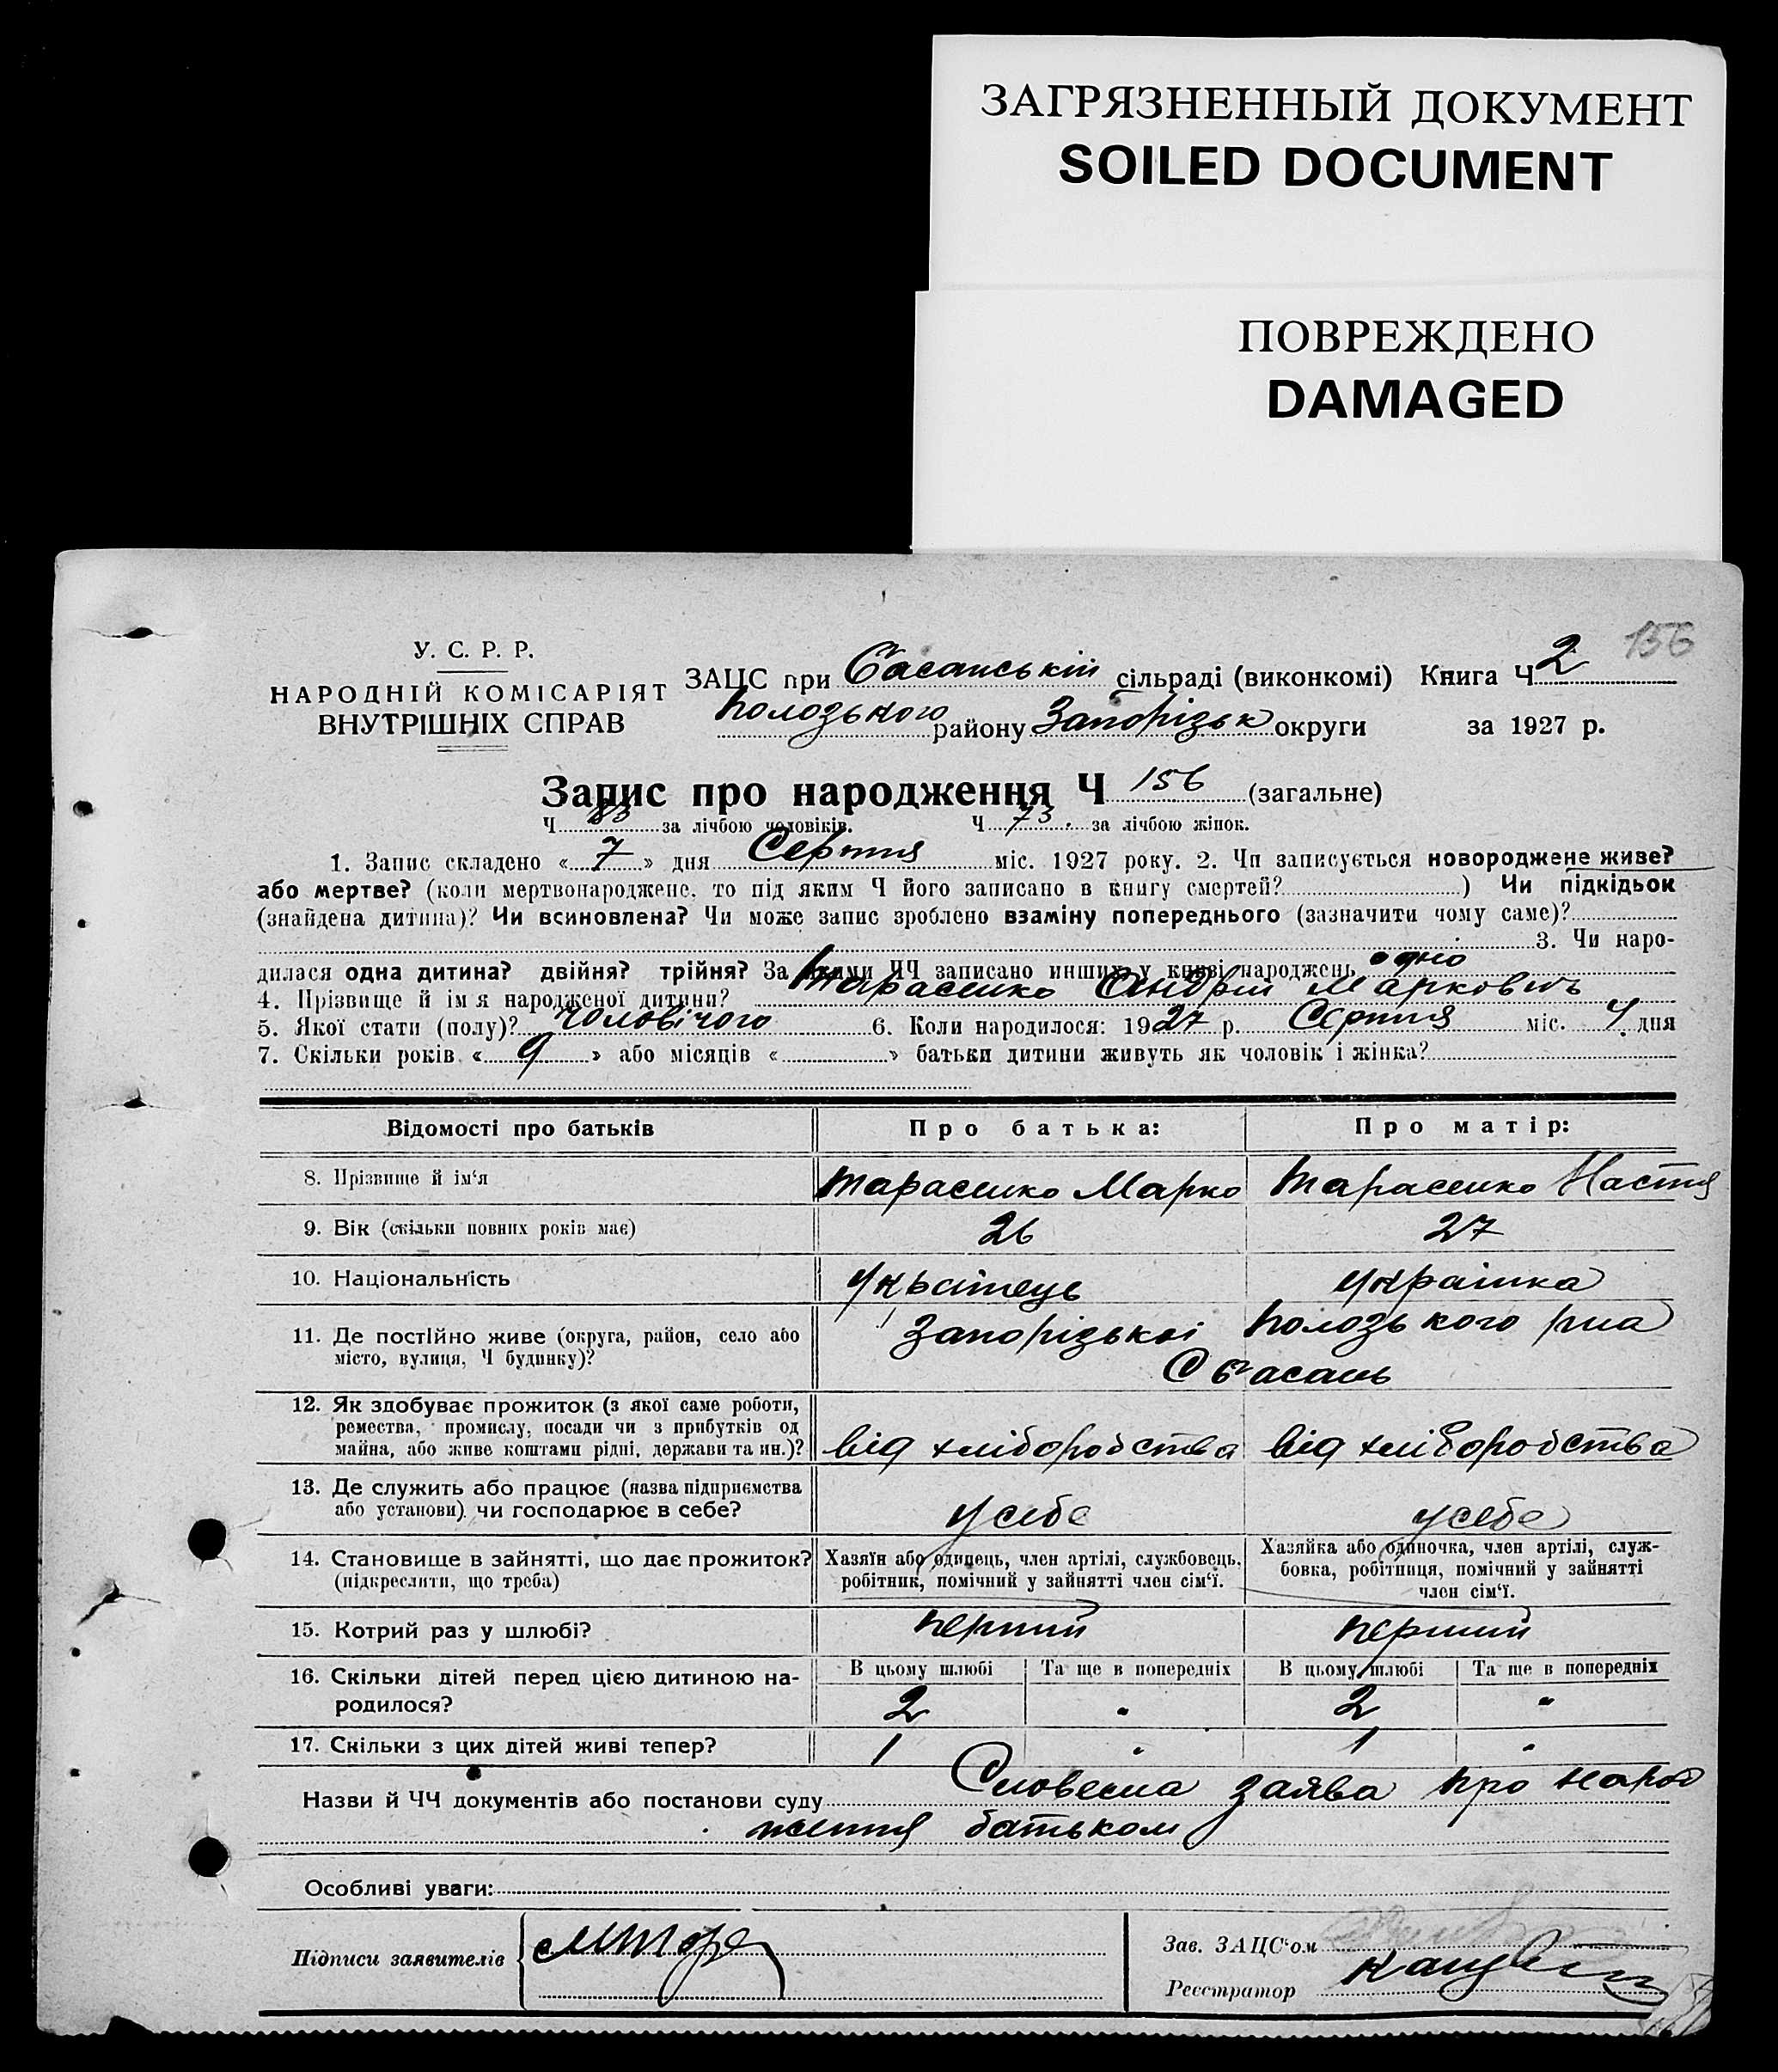 ЗАГРЯЗНЕННЫЙ ДОКУМЕНТ
SOILED DOCUMENT
ПОВРЕЖДЕНО
DAMAGED
156
У. С. Р. Р.
НАРОДНІЙ КОМІСАРІЯТ
ВНУТРІШНІХ СПРАВ
ЗАЦС при Басанській сільраді (виконкомі) Книга Ч 2
Полозького району Запорізьк округи за 1927 р.
Запис про народження Ч 156 (загальне)
Ч 83 за лічбою чоловіків. Ч 73. за лічбою жінок.
1. Запис складено « 7 » дня Серпня міс. 1927 року. 2. Чи записується новороджене живе?
або мертве? (коли мертвонароджене, то під яким Ч його записано в книгу смертей? ) Чи підкідьок
(знайдена дитина)? Чи всиновлена? Чи може запис зроблено взаміну попереднього (зазначити чому саме)?
3. Чи наро-
дилася одна дитина? двійня? трійня? За якими ЧЧ записано инших у книзі народжень одно
4. Прізвище й ім я народженої дитини? Тарасенко Андрій Маркович
5. Якої стати (полу)? Чоловічого 6. Коли народилося: 1927 р. Серпня міс. 4. дня
7. Скільки років « 9 » або місяців « » батьки дитини живуть як чоловік і жінка?
Відомості про батьків Про батька: Про матір:
8. Прізвище й ім'я Тарасенко Марко Тарасенко Настя
9. Вік (скільки повних років має) 26 27
10. Національність Українець Українка
11. Де постійно живе (округа, район, село або Запорізької Полозького р-на
місто, вулиця, Ч будинку)? С Басань
12. Як здобуває прожиток (з якої саме роботи,
ремества, промислу, посади чи з прибутків од
майна, або живе коштами рідні, держави та ин.)? від хліборобства від хліборобства
13. Де служить або працює (назва підприємства
або установи) чи господарює в себе? у себе у себе
14. Становище в зайнятті, що дає прожиток? Хазяїн або одинець, член артілі, службовець, Хазяйка або одиночка, член артілі, служ-
(підкреслити, що треба) робітник, помічний у зайнятті член сім'ї. бовка, робітниця, помічний у зайнятті
член сім'ї.
15. Котрий раз у шлюбі? перший перший
16. Скільки дітей перед цією дитиною на- В цьому шлюбі Та ще в попередніх В цьому шлюбі Та ще в попередніх
родилося? 2 " 2 "
17. Скільки з цих дітей живі тепер? 1 " 1 "
Назви й ЧЧ документів або постанови суду Словесна заява про народ
ження батьком
Особливі уваги:
Підписи заявителів
Зав. ЗАЦС'ом
Реєстратор